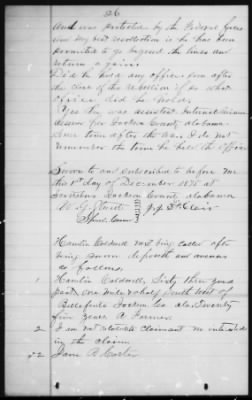 26
and was protected by the Federal Guns
and my best recollection is he has been
permitted to go beyond the lines and
return again.
Did he hold any office from after
the close of the rebellion if so what
office did he hold.
Yes he was assistant Internal Revenue
Assessor for Jackson County Alabama
Some time after the war. I do not
remember the time he held the office
Sworn to and subscribed to before me
this 1st day of December 1875 at
Scottsboro Jackson County Alabama
J. J. St Clair
Spcl. Comr
Hamlin Caldwell next being called after
being sworn deposeth and answers
as follows.
1 Hamlin Caldwell, Sixty three years
past, one mile & half South West of
Bellefonte Jackson Co ala. Twenty
five years A Farmer.
2 I am not related to claimant nor interested
in the claim
22 Jane A.